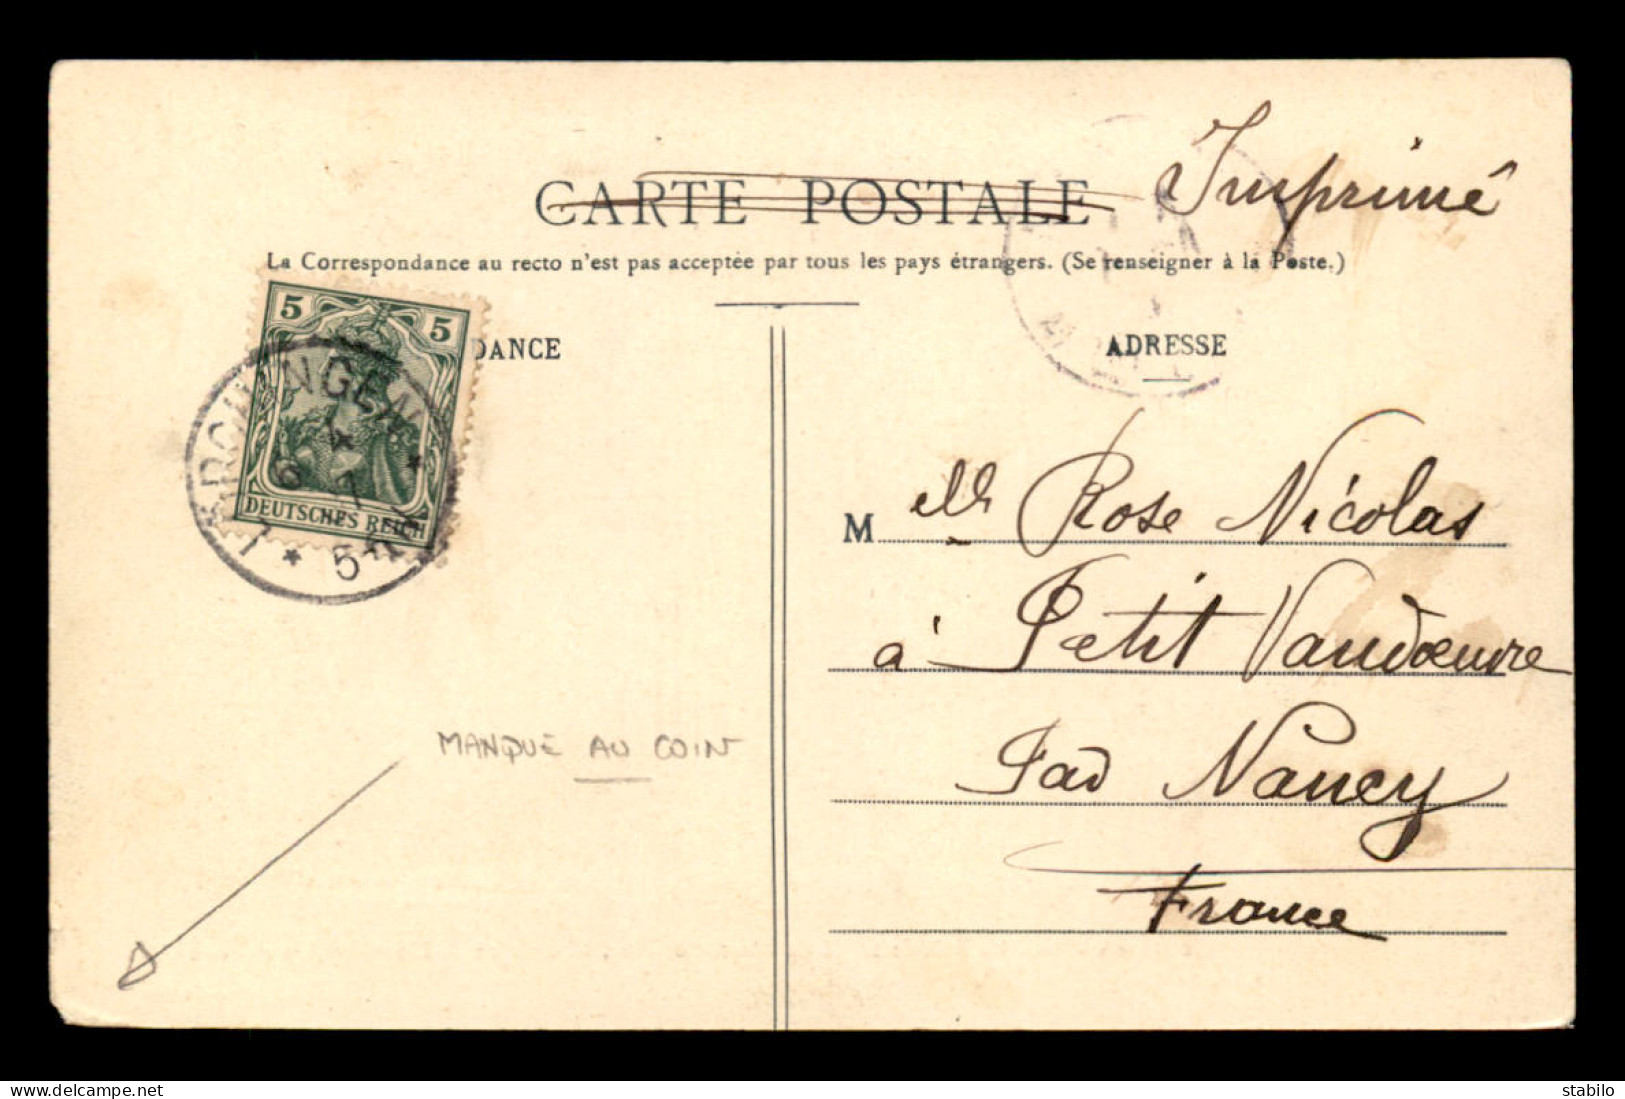 Imprimé
CARTE POSTALE
La Correspondance au recto n'est pas acceptée par tous les pays étrangers. (Se renseigner à la Poste.)
5 5
DANCE
ADRESSE
DEUTSCHES REICH
Melle Rose Nicolas
à Petit Vandœuvre
Nancy
France
MANQUE AU COIN
www.delcampe.net
stabilo